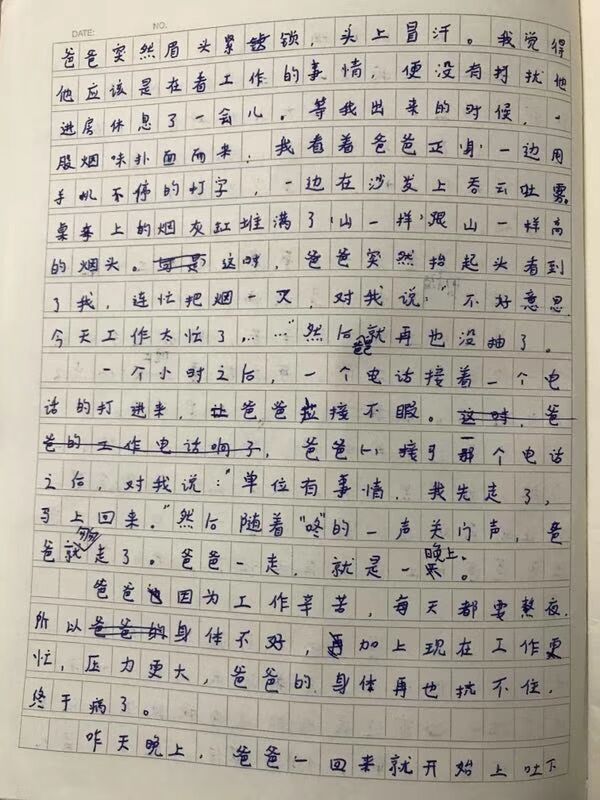 DATE: NO.
爸爸突然眉头紧锁，头上冒汗。我觉得
他应该是在看工作的事情，便没有打扰他
进房休息了一会儿。等我出来的时候，一
股烟味扑面而来，我看着爸爸正一边用
手机不停的打字，一边在沙发上吞云吐雾。
桌上的烟灰缸堆满了山一样跟山一样高
的烟头。这时，爸爸突然抬起头看到
了我，连忙把烟一灭，对我说："不好意思
今天工作太忙了……"然后爸爸就再也没抽了。
一个小时之后，一个电话接着一个电
话的打进来，爸爸接不暇。这时，爸
爸的工作电话响了，爸爸接了那一个电话
之后，对我说："单位有事情，我先走了，
马上回来。"然后随着"咚"的一声关门声，爸
爸就匆匆走了。爸爸一走，就是一晚上。
爸爸因为工作辛苦，每天都要熬夜，
所以爸爸的身体不好，再加上现在工作更
忙，压力更大，爸爸的身体再也抗不住，
终于病了。
昨天晚上，爸爸一回来就开始上吐下